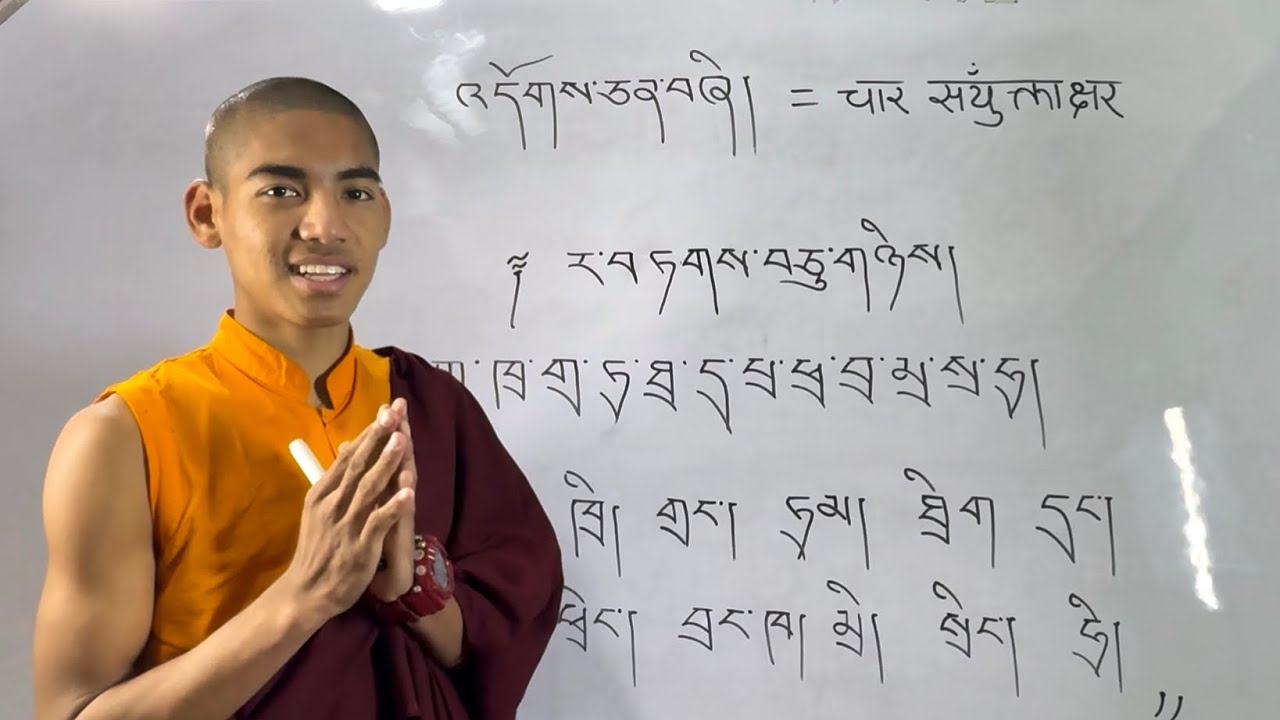 འདོགས་ཅན་བཞི། = चार सयुँक्ताक्षर
༈ ར་བཏགས་བཅུ་གཉིས།
ཁྲ་གྲ་ཏྲ་ཐྲ་དྲ་པྲ་ཕྲ་བྲ་མྲ་སྲ་ཧྲ།
ཁྲི། གྲང་། ཏྲམ། ཐྲིག དྲང་།
ཕྲེང་། བྲང་ཁ། མྲི། སྲིང་། ཧྲི།